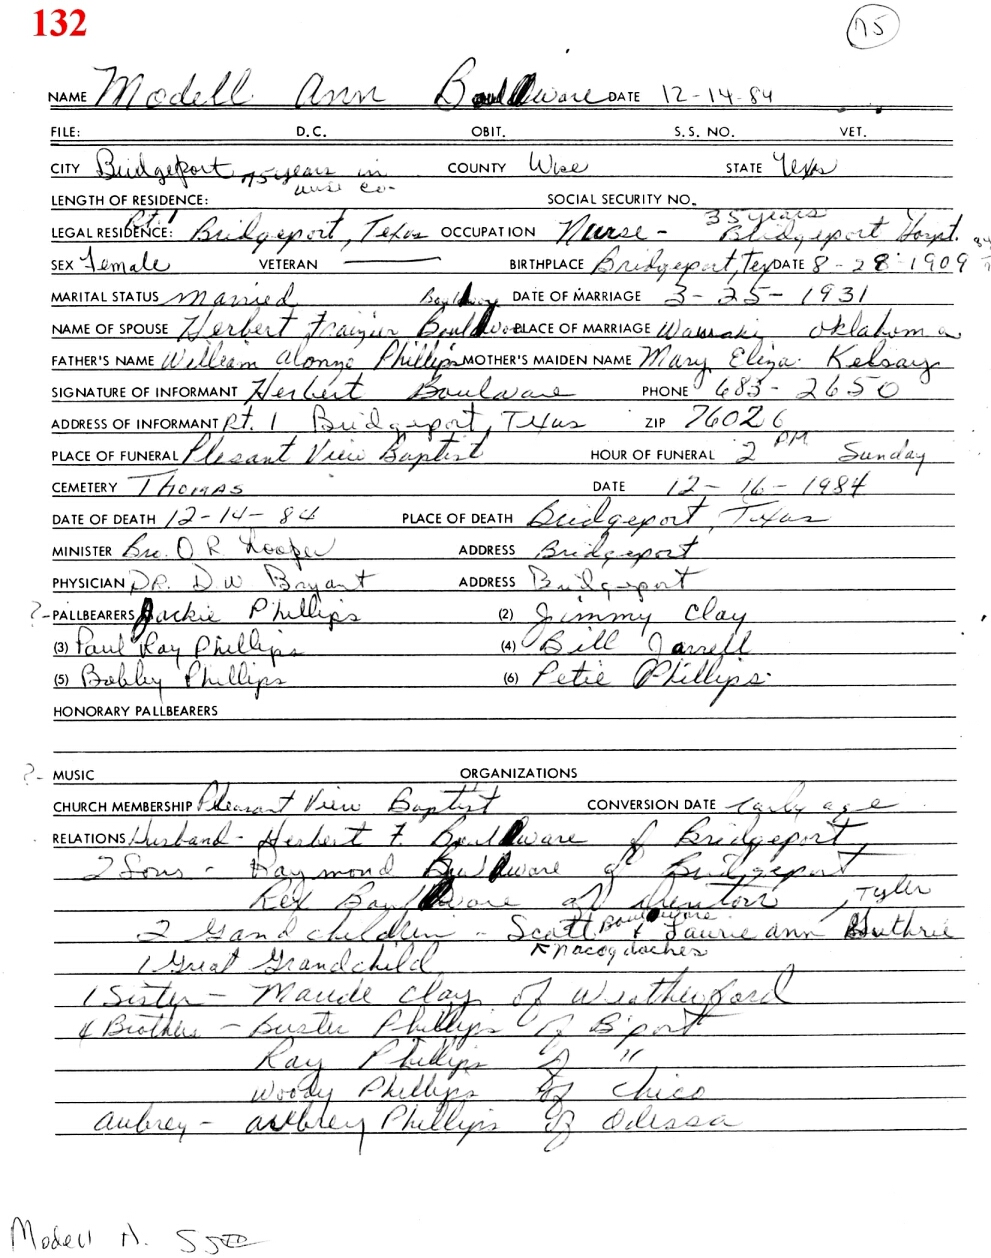 132
75
NAME Modell Ann Boulware DATE 12-14-84
FILE: D.C. OBIT. S.S. NO. VET.
CITY Bridgeport 75 years in COUNTY Wise STATE Texas
Wise Co-
LENGTH OF RESIDENCE: SOCIAL SECURITY NO.
Rt. 1 35 years
LEGAL RESIDENCE: Bridgeport, Texas OCCUPATION Nurse - Bridgeport Hospt.
SEX Female VETERAN BIRTHPLACE Bridgeport, Tex DATE 8-28-1909
MARITAL STATUS Married DATE OF MARRIAGE 3-25-1931
NAME OF SPOUSE Herbert Frazier Boulware PLACE OF MARRIAGE Oklahoma
FATHER'S NAME William Alonzo Phillips MOTHER'S MAIDEN NAME Mary Eliza Kelsay
SIGNATURE OF INFORMANT Herbert Boulware PHONE 683-2650
ADDRESS OF INFORMANT Rt. 1 Bridgeport, Texas ZIP 76026
PLACE OF FUNERAL Plesant View Baptist HOUR OF FUNERAL 2 PM Sunday
CEMETERY Thomas DATE 12-16-1984
DATE OF DEATH 12-14-84 PLACE OF DEATH Bridgeport, Texas
MINISTER Bro. O R Hooper ADDRESS Bridgeport
PHYSICIAN DR. D W Bryant ADDRESS Bridgeport
?- PALLBEARERS Jackie Phillips (2) Jimmy Clay
(3) Paul Ray Phillips (4) Bill Jarrell
(5) Bobby Phillips (6) Petie Phillips
HONORARY PALLBEARERS
?- MUSIC ORGANIZATIONS
CHURCH MEMBERSHIP Pleasant View Baptist CONVERSION DATE early age
RELATIONS Husband - Herbert F. Boulware of Bridgeport,
2 Sons - Raymond Boulware of Bridgeport
Rex Boulware of Denton
, Tyler
2 Grandchildren - Scott Boulware & Laurie Ann Guthrie
1 Great Grandchild Nacogdoches
1 Sister - Maude Clay of Weatherford
4 Brothers - Buster Phillips of B'port
Ray Phillips of "
Woody Phillips of Chico
Aubrey - Aubrey Phillips of Odessa
Modell A.